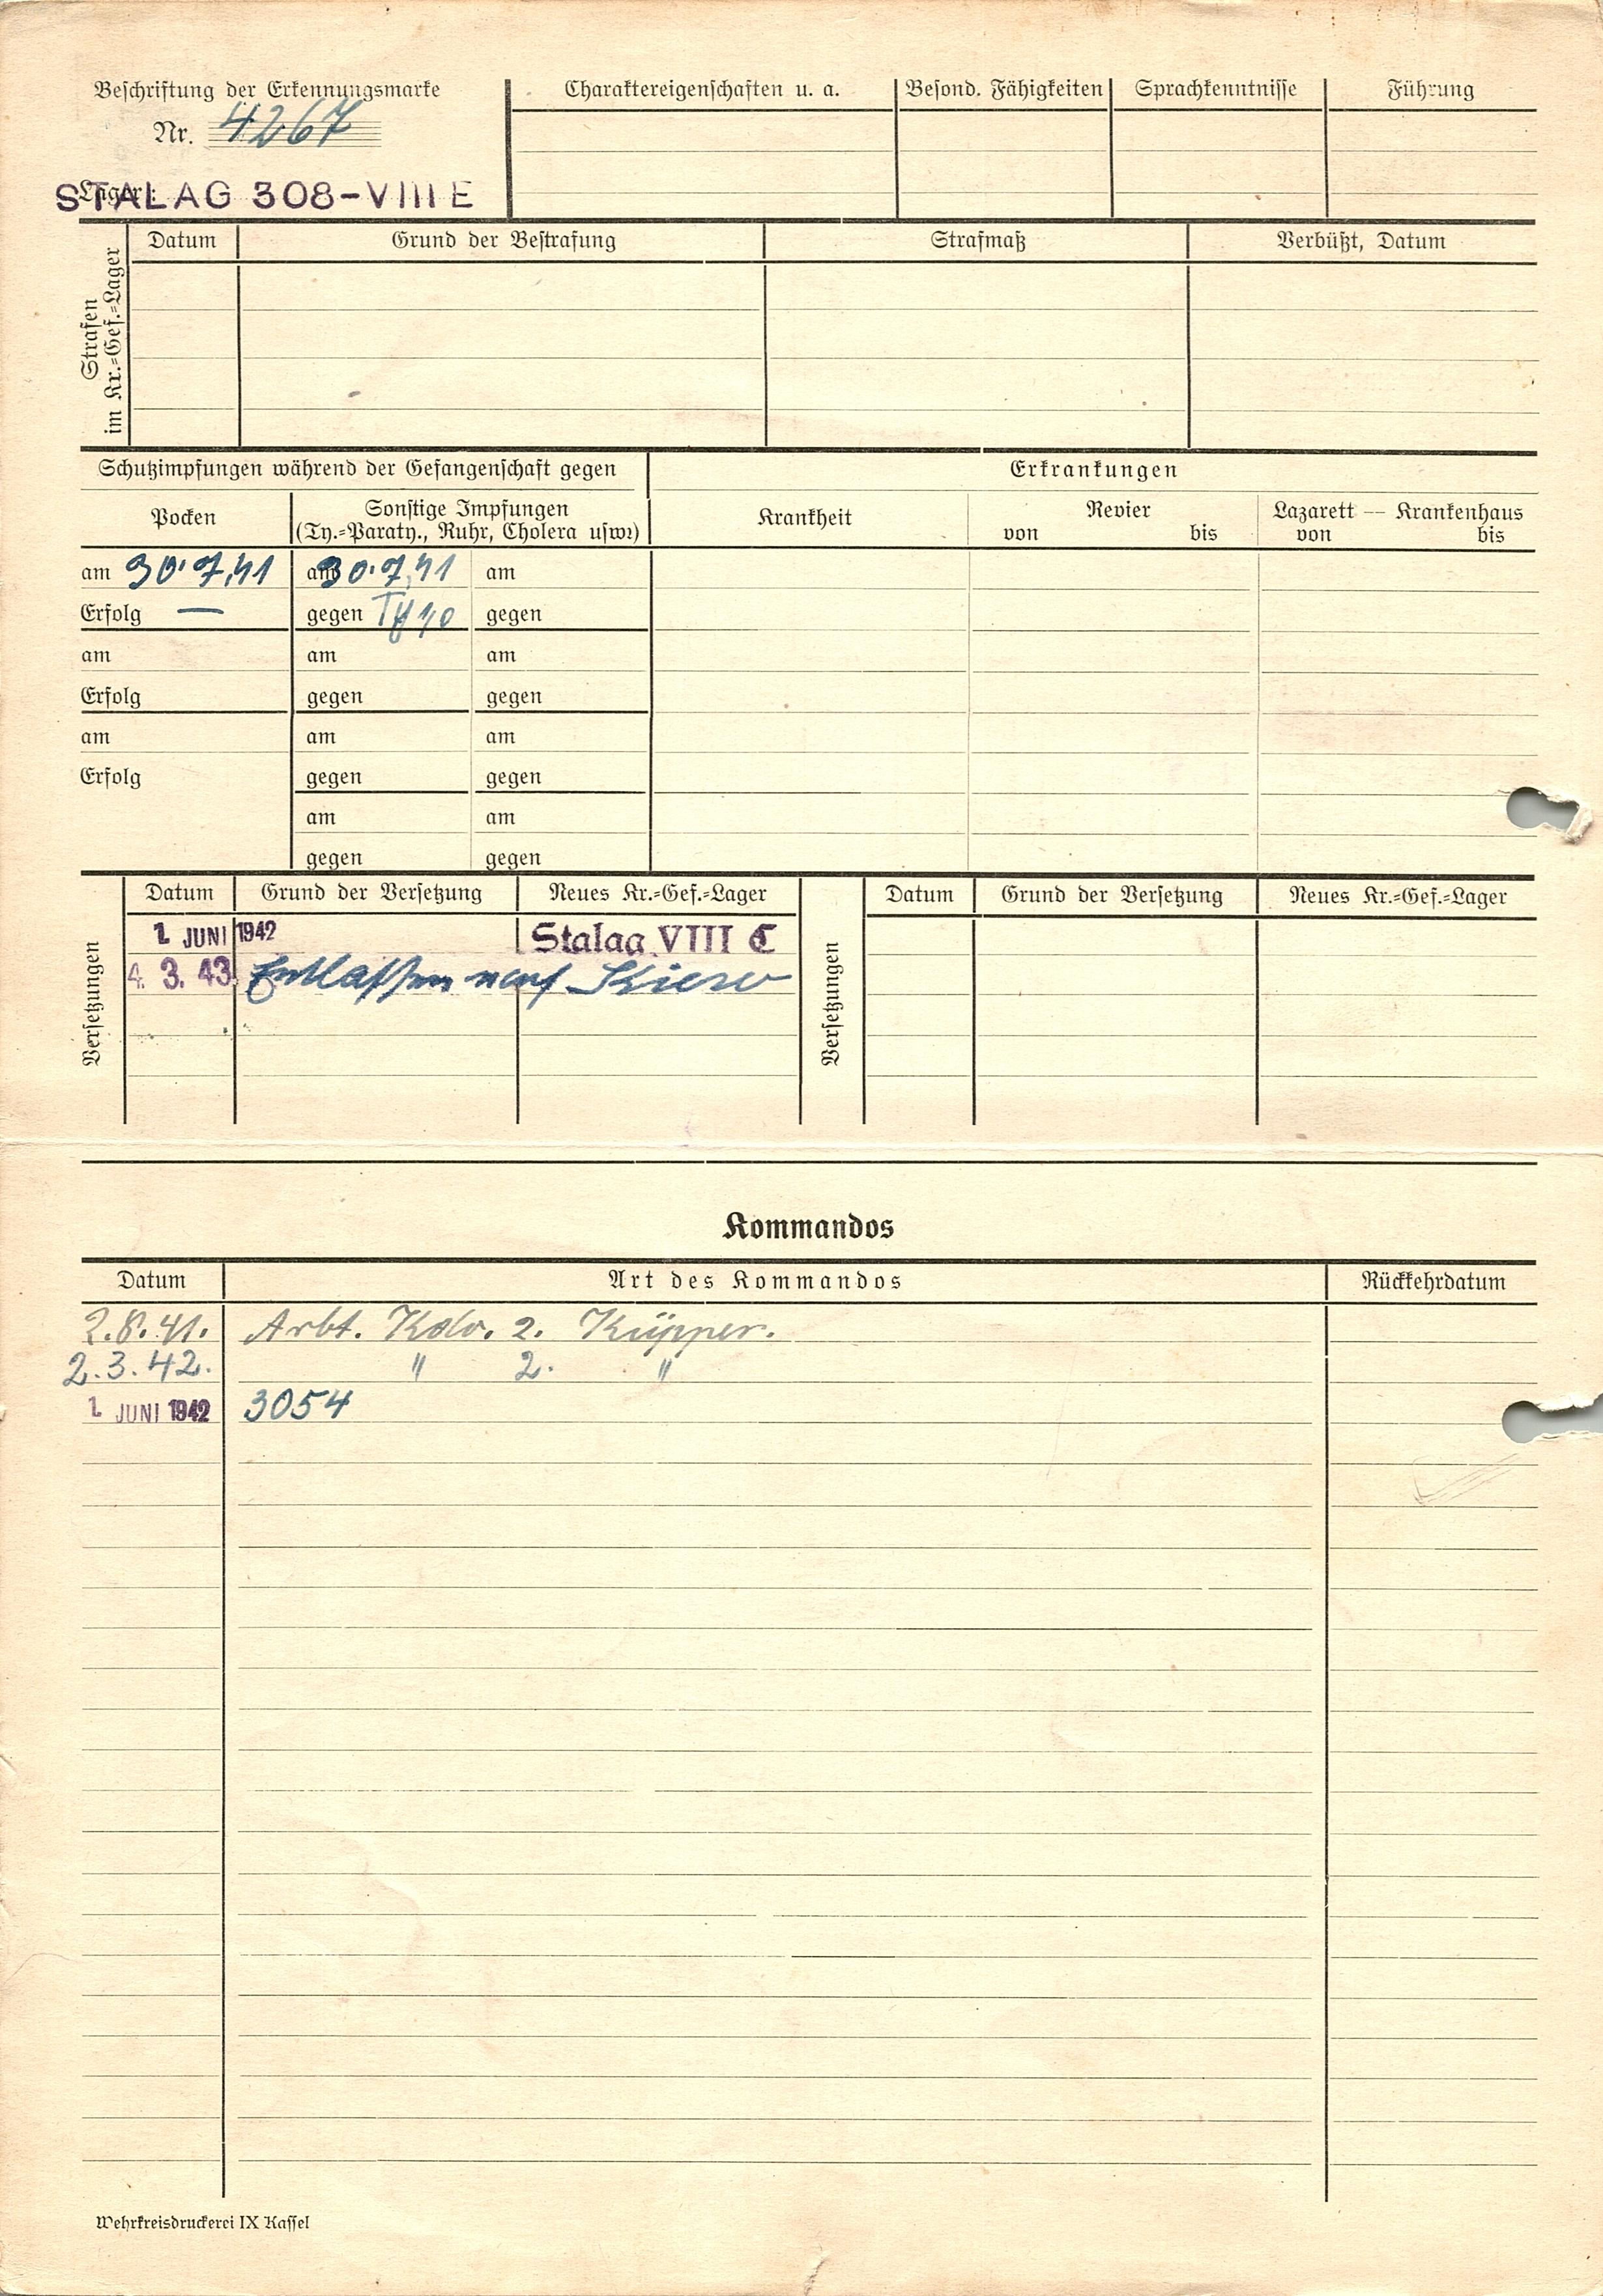 Beschriftung der Erkennungsmarke
Nr. 4267
Lager:
STALAG 308-VIII E
Charaktereigenschaften u. a.
Besond. Fähigkeiten
Sprachkenntnisse
Führung
Strafen im Kr.=Gef.=Lager
Datum
Grund der Bestrafung
Strafmaß
Verbüßt, Datum
Schutzimpfungen während der Gefangenschaft gegen
Erkrankungen
Pocken
Sonstige Impfungen
(Ty.=Paraty., Ruhr, Cholera usw.)
Krankheit
Revier
von bis
Lazarett — Krankenhaus
von bis
am 30.7.41 am 30.7.41 am
Erfolg — gegen gegen
am am am
Erfolg gegen gegen
am am am
Erfolg gegen gegen
am am
gegen gegen
Versetzungen
Datum Grund der Versetzung Neues Kr.=Gef.=Lager
1. JUNI 1942 Stalag VIII C
4. 3. 43 Entlassen nach
Versetzungen
Datum Grund der Versetzung Neues Kr.=Gef.=Lager
Kommandos
Datum Art des Kommandos Rückkehrdatum
2.8.41. Arbt. Kdo. 2. Küpper.
2.3.42. " 2. "
1. JUNI 1942 3054
Wehrkreisdruckerei IX Kassel